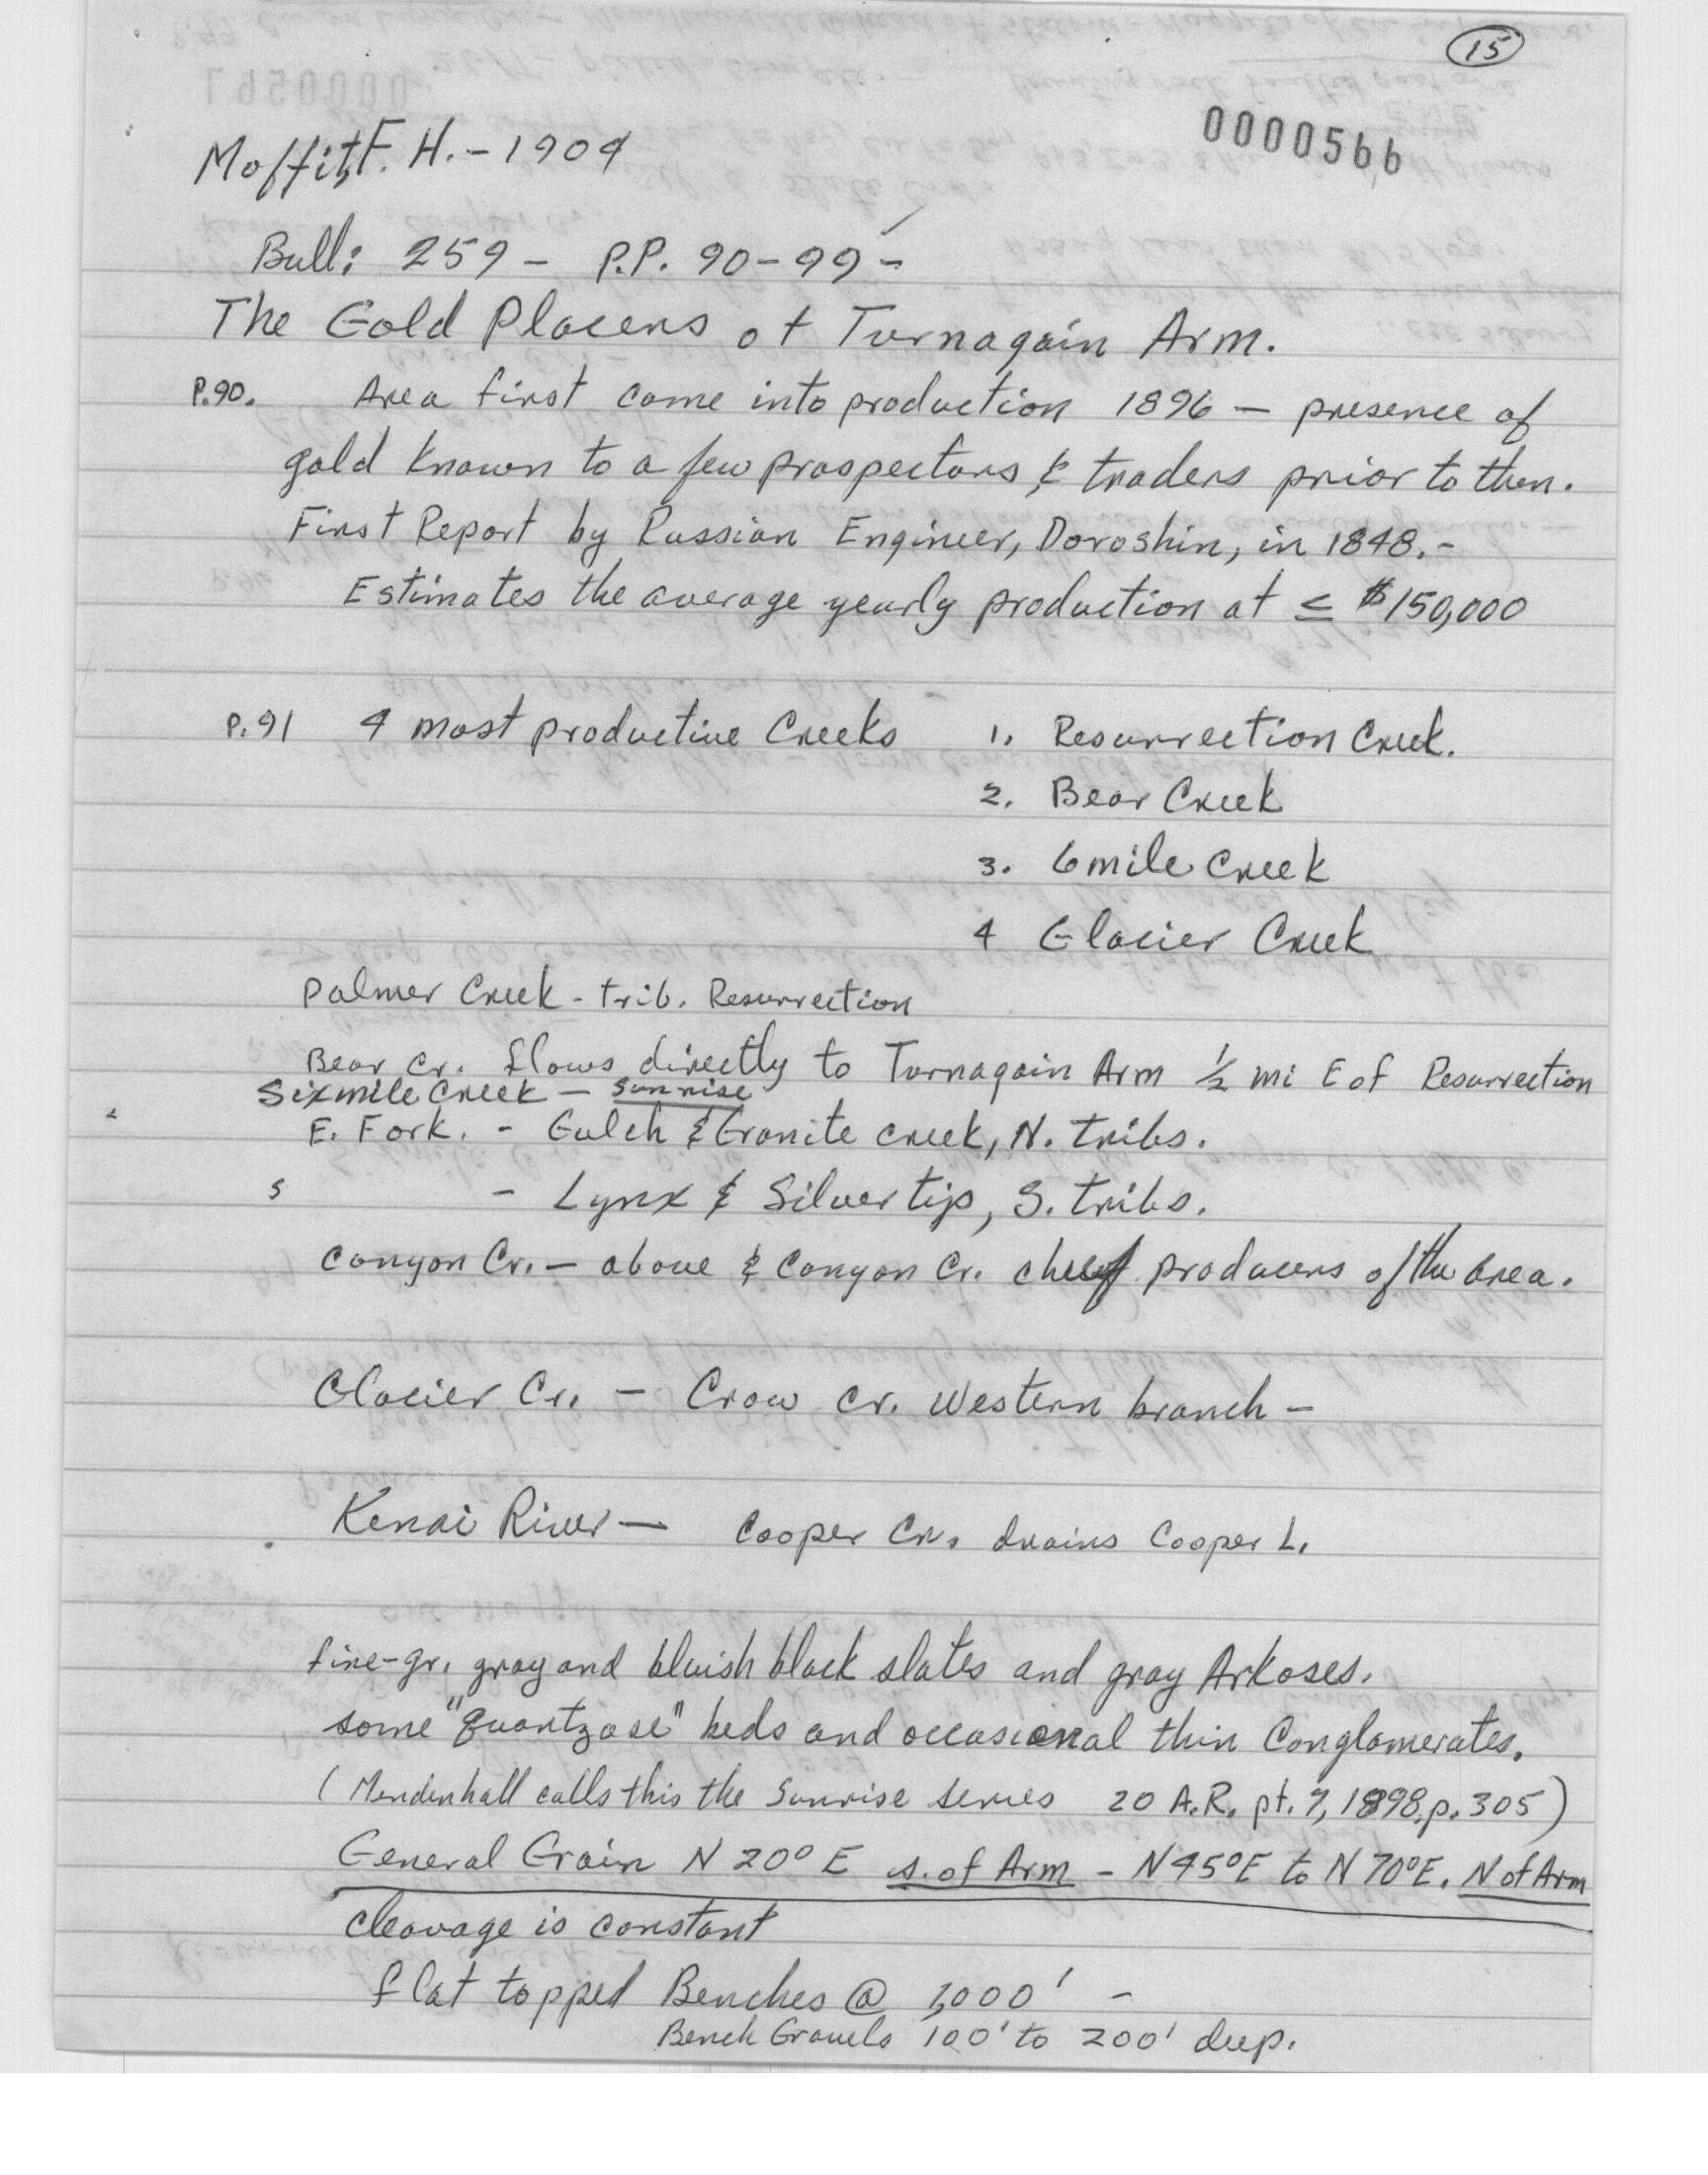 15
0000566
Moffit, F. H. - 1904
Bull: 259 - P.P. 90-99 -
The Gold Placers of Turnagain Arm.
P.90. Area first came into production 1896 - presence of
gold known to a few prospectors & traders prior to then.
First Report by Russian Engineer, Doroshin, in 1848. -
Estimates the average yearly production at ≤ $150,000
P.91 4 most productive Creeks 1. Resurrection Creek.
2. Bear Creek
3. 6 mile Creek
4 Glacier Creek
Palmer Creek - trib. Resurrection
Bear Cr. flows directly to Turnagain Arm ½ mi E of Resurrection
Sixmile Creek - Sunrise
E. Fork. - Gulch & Granite Creek, N. tribs.
- Lynx & Silvertip, S. tribs.
Canyon Cr. - above & Canyon Cr. cheif producers of the area.
Glacier Cr. - Crow Cr. Western branch -
Kenai River - Cooper Cr. drains Cooper L.
fine-gr. gray and bluish black slates and gray Arkoses.
some "quartzose" beds and occasional thin Conglomerates.
(Mendenhall calls this the Sunrise series 20 A.R. pt. 7, 1898, p. 305)
General Grain N 20° E s. of Arm - N 45° E to N 70° E. N of Arm
cleavage is constant
flat topped Benches @ 1,000' -
Bench Gravels 100' to 200' deep.